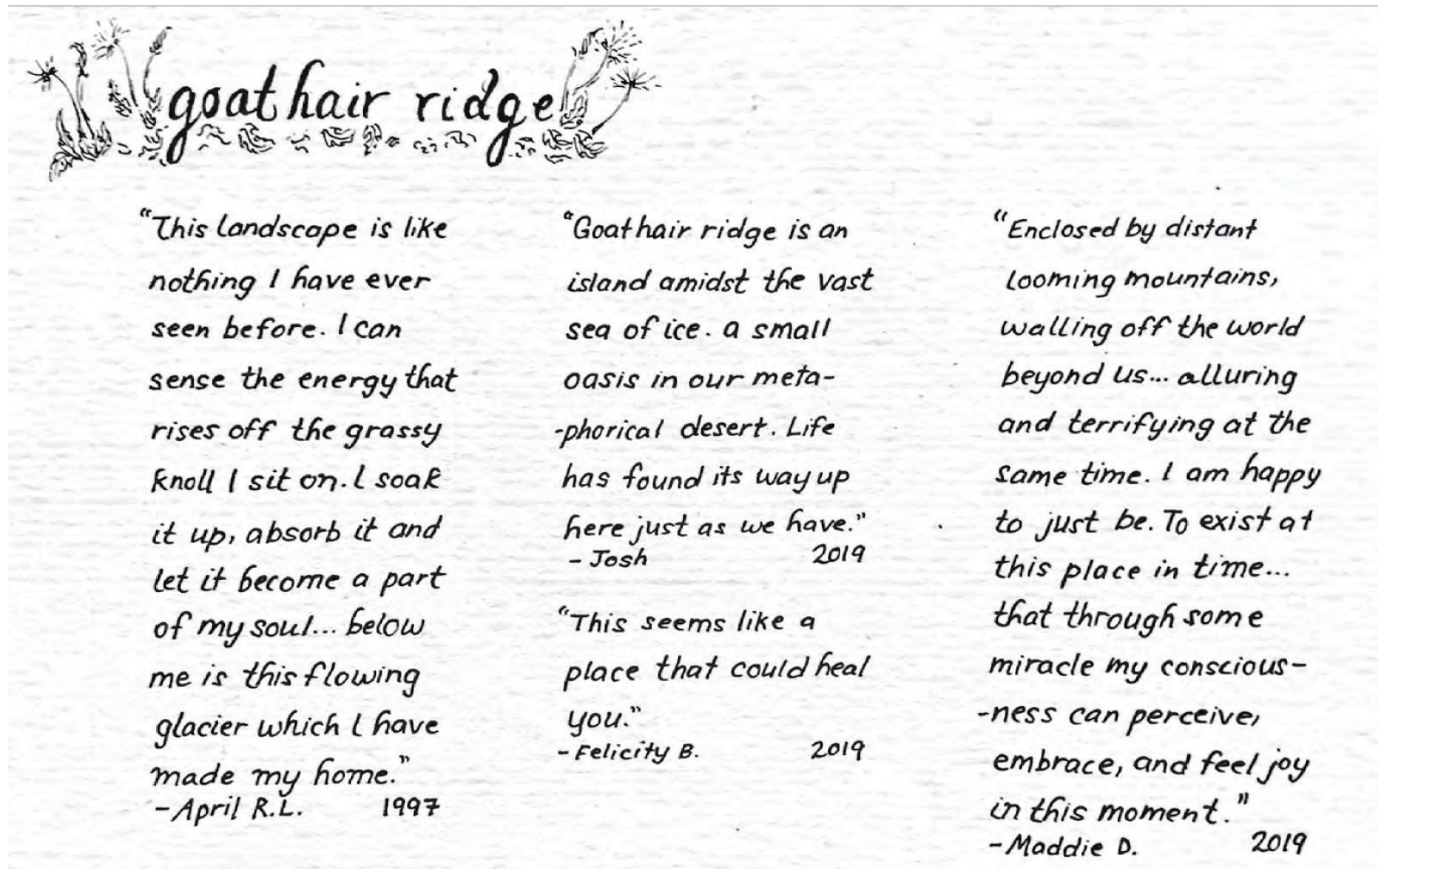 goat hair ridge
"This landscape is like
nothing I have ever
seen before. I can
sense the energy that
rises off the grassy
knoll I sit on. I soak
it up, absorb it and
let it become a part
of my soul... below
me is this flowing
glacier which I have
made my home."
- April R.L. 1997
"Goat hair ridge is an
island amidst the vast
sea of ice. a small
oasis in our meta-
-phorical desert. Life
has found its way up
here just as we have."
- Josh 2019
"This seems like a
place that could heal
you."
- Felicity B. 2019
"Enclosed by distant
looming mountains,
walling off the world
beyond us... alluring
and terrifying at the
same time. I am happy
to just be. To exist at
this place in time...
that through some
miracle my conscious-
-ness can perceive,
embrace, and feel joy
in this moment."
- Maddie D. 2019